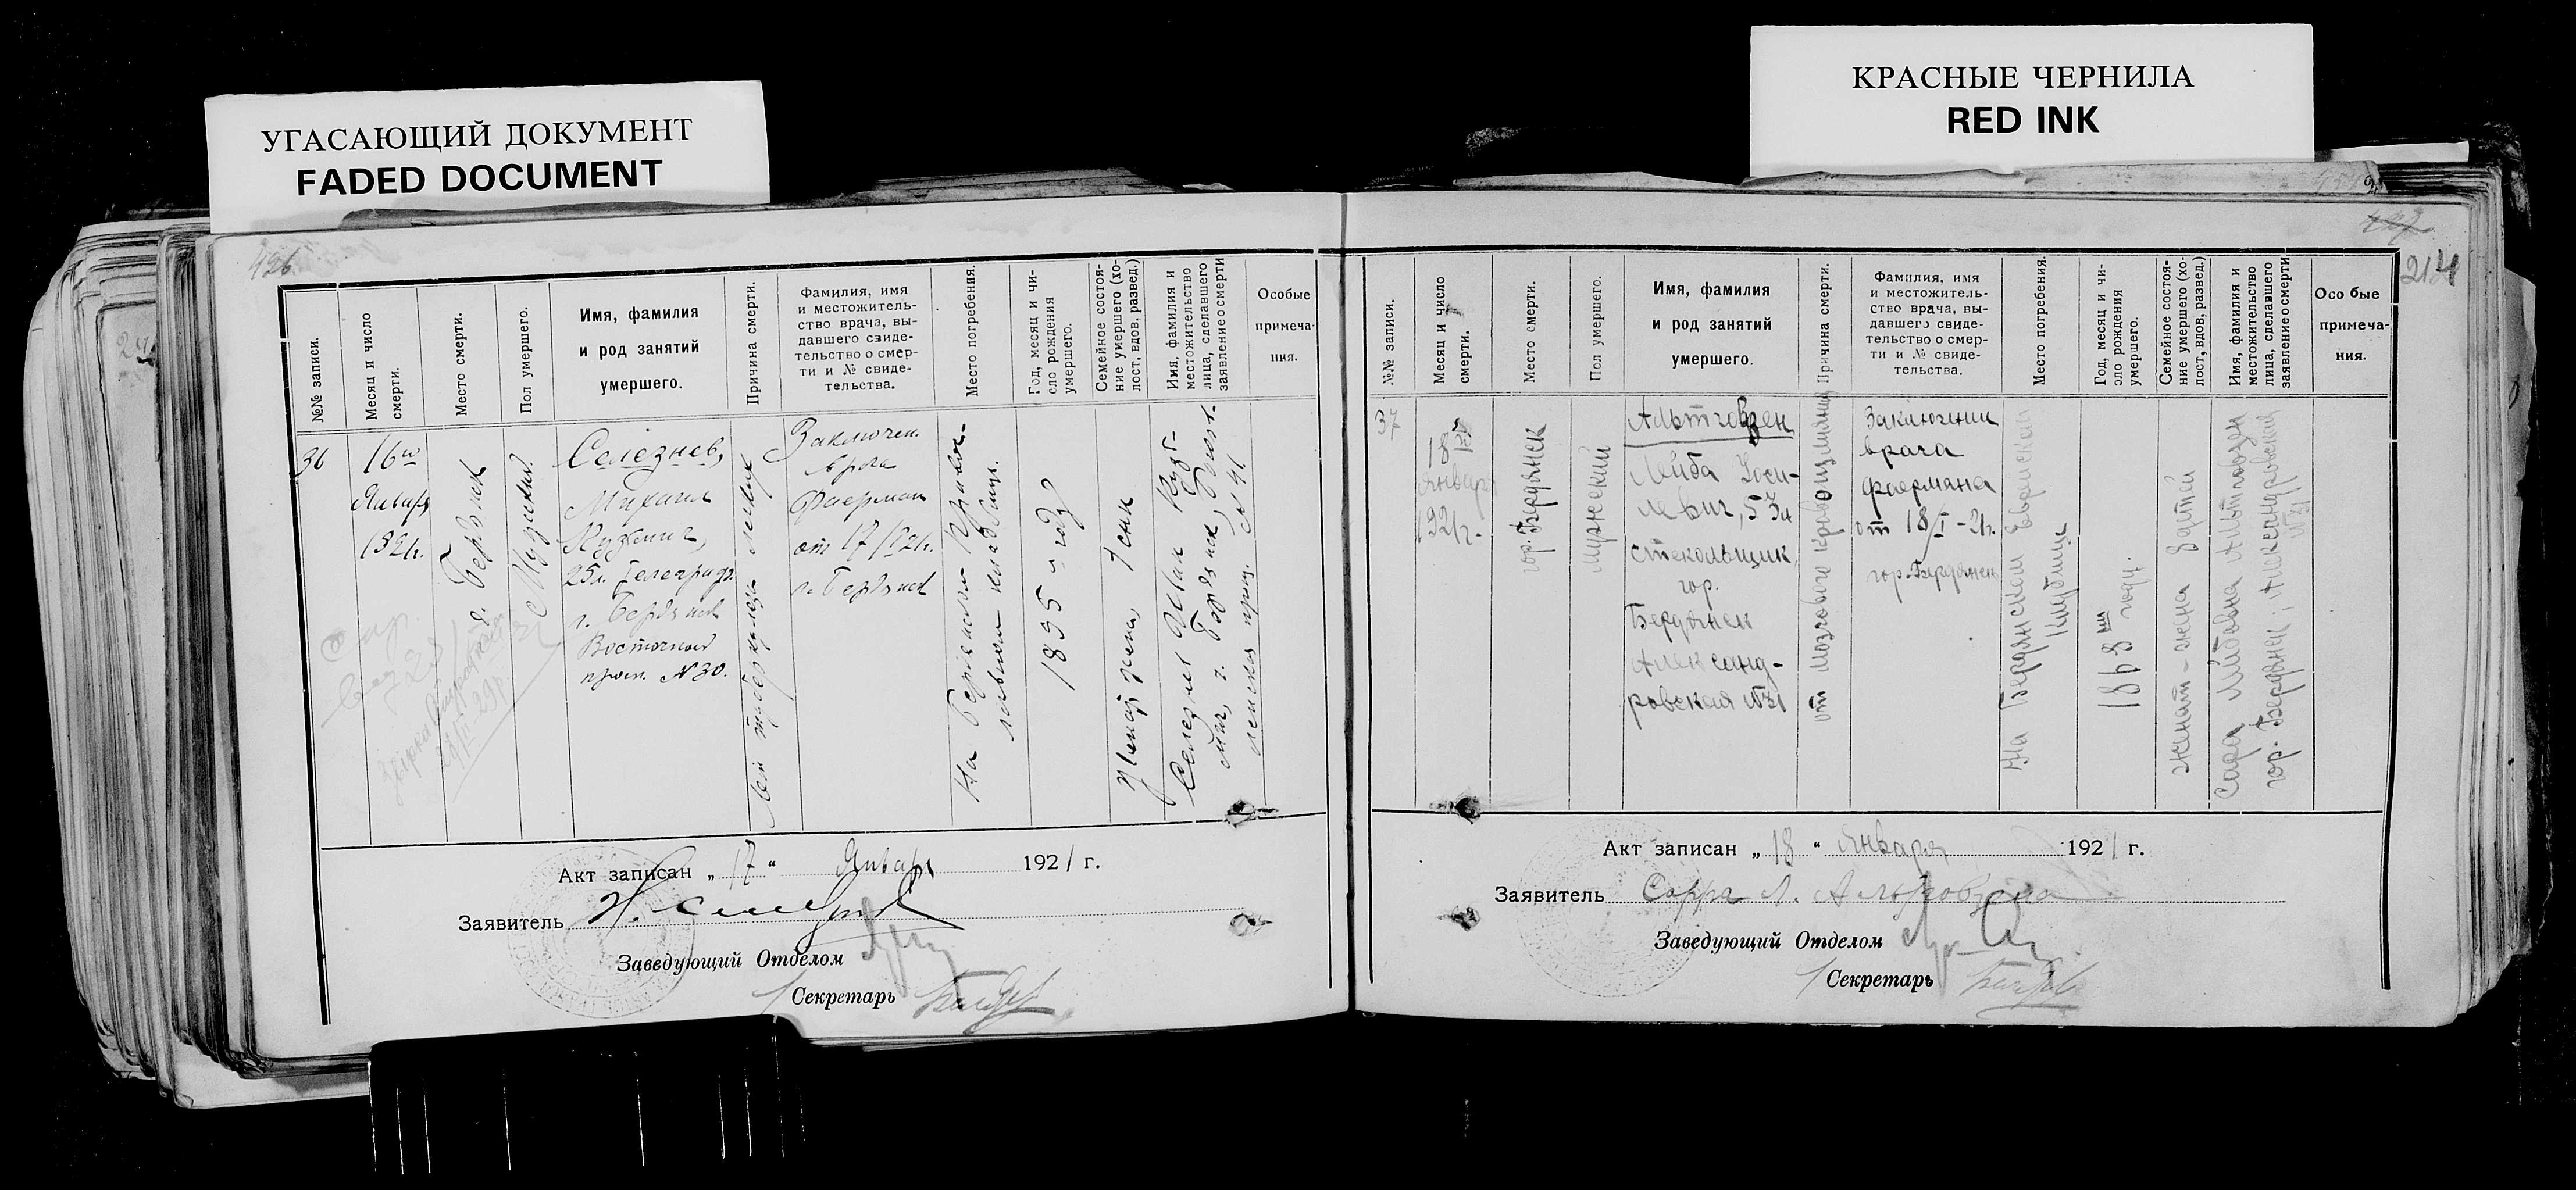 УГАСАЮЩИЙ ДОКУМЕНТ
FADED DOCUMENT
КРАСНЫЕ ЧЕРНИЛА
RED INK
426
№№ записи.
Месяц и число
смерти.
Место смерти.
Пол умершего.
Имя, фамилия
и род занятий
умершего.
Причина смерти.
Фамилия, имя
и местожитель-
ство врача, вы-
давшего свиде-
тельство о смер-
ти и № свиде-
тельства.
Место погребения.
Год, месяц и чи-
сло рождения
умершего.
Семейное состоя-
ние умершего (хо-
лост, вдов, развед.)
Имя, фамилия и
местожительство
лица, сделавшего
заявление о смерти
Особые
примеча-
ния.
36
16го
Января
1921г.
г. Бердянск
Мужской
Селезнев,
Михаил
Кузьмич,
25л. Телеграф.
г. Бердянск
Восточный
просп. №30.
туберкулеза легких
Заключен.
врача
Фаерман
от 17/I 21г.
г. Бердянск
На Бердянском
кладбище.
1895 год
Женат, жена, 1 сын
Селезнев
г. Бердянск,
№ 41
Акт записан „ 17 “ Января 1921 г.
Заявитель
Заведующий Отделом
Секретарь
214
№№ записи.
Месяц и число
смерти.
Место смерти.
Пол умершего.
Имя, фамилия
и род занятий
умершего.
Причина смерти.
Фамилия, имя
и местожитель-
ство врача, вы-
давшего свиде-
тельство о смер-
ти и № свиде-
тельства.
Место погребения.
Год, месяц и чи-
сло рождения
умершего.
Семейное состоя-
ние умершего (хо-
лост, вдов, развед.)
Имя, фамилия и
местожительство
лица, сделавшего
заявление о смерти
Особые
примеча-
ния.
37
18го
Января
1921г.
гор. Бердянск
Мужской
Альтговзен
Лейба Иоси-
левич, 53л
стекольщик,
гор.
Бердянск
Александ-
ровская №31
от мозгового кровоизлияния
Заключении
врача
Фаермана
от 18/I-21г.
гор. Бердянск
На Бердянском Еврейском
кладбище
1868 году.
женат - жена 8 детей
Сара Лейбовна Альтговзен
гор. Бердянск, Александровская
№31
Акт записан „ 18 “ Января 1921 г.
Заявитель Сарра Л. Альтговзена
Заведующий Отделом
Секретарь